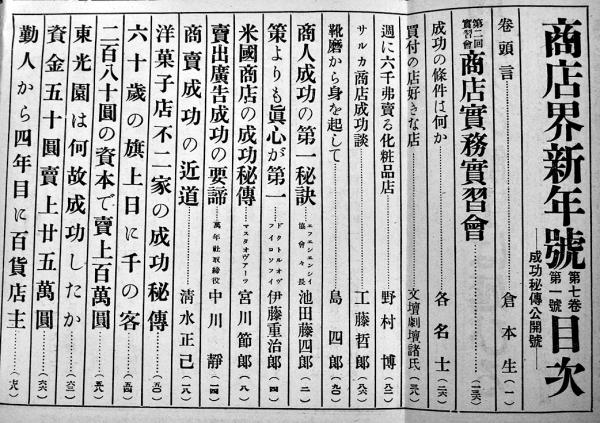 商店界新年號 第七卷第一號 目次
―成功秘傳公開號―
卷頭言 倉本生(一)
第二回實習會 商店實務實習會(一三六)
成功の條件は何か 各名士(二六)
買付の店好きな店 文壇劇壇諸氏(三八)
週に六千弗賣る化粧品店 野村博(八二)
サルカ商店成功談 工藤哲郎(八六)
靴磨から身を起して 島四郎(九〇)
商人成功の第一秘訣 エフヰシエンシイ協會々長 池田藤四郎(二)
策よりも眞心が第一 ドクトルオヴフイロソフイ 伊藤重治郎(四)
米國商店の成功秘傳 マスタオヴアーツ 宮川節郎(八)
賣出廣告成功の要諦 萬年社取締役 中川靜(一四)
商賣成功の近道 清水正己(一八)
洋菓子店不二家の成功秘傳(五〇)
六十歳の旗上日に千の客(五四)
二百八十圓の資本で賣上百萬圓(五九)
東光園は何故成功したか(六三)
資金五十圓賣上廿五萬圓(六六)
勤人から四年目に百貨店主(六九)